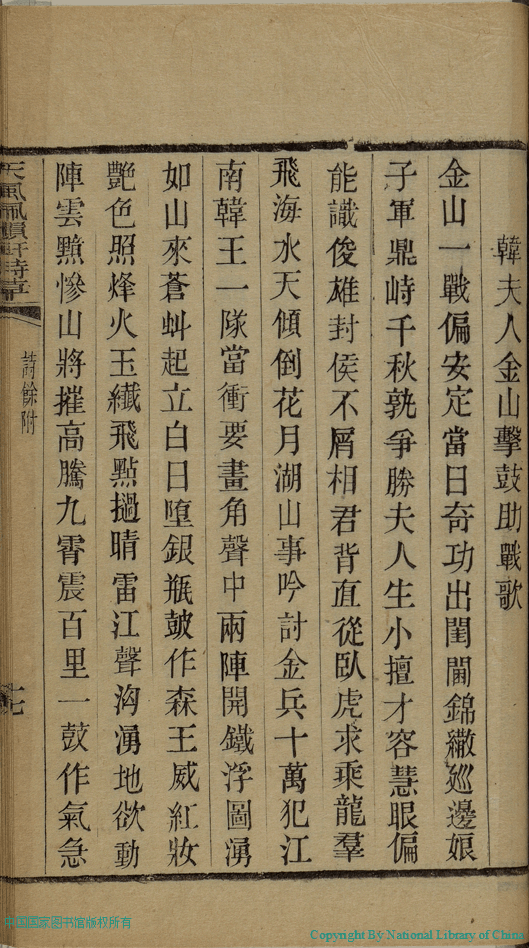 韓夫人金山擊鼓助戰歌
金山一戰偏安定當日奇功出閨閫錦繖巡邊娘
子軍鼎峙千秋孰爭勝夫人生小擅才容慧眼偏
能識俊雄封侯不屑相君背直從臥虎求乘龍羣
飛海水天傾倒花月湖山事吟討金兵十萬犯江
南韓王一隊當衝要畫角聲中兩陣開鐵浮圖湧
如山來蒼虬起立白日墮銀瓶皷作森王威紅妝
艷色照烽火玉纖飛點撾晴雷江聲洶湧地欲動
陣雲黲慘山將摧高騰九霄震百里一鼓作氣急
天風佩韻軒詩草
詩餘附
十七
中国国家图书馆版权所有
Copyright By National Library of China